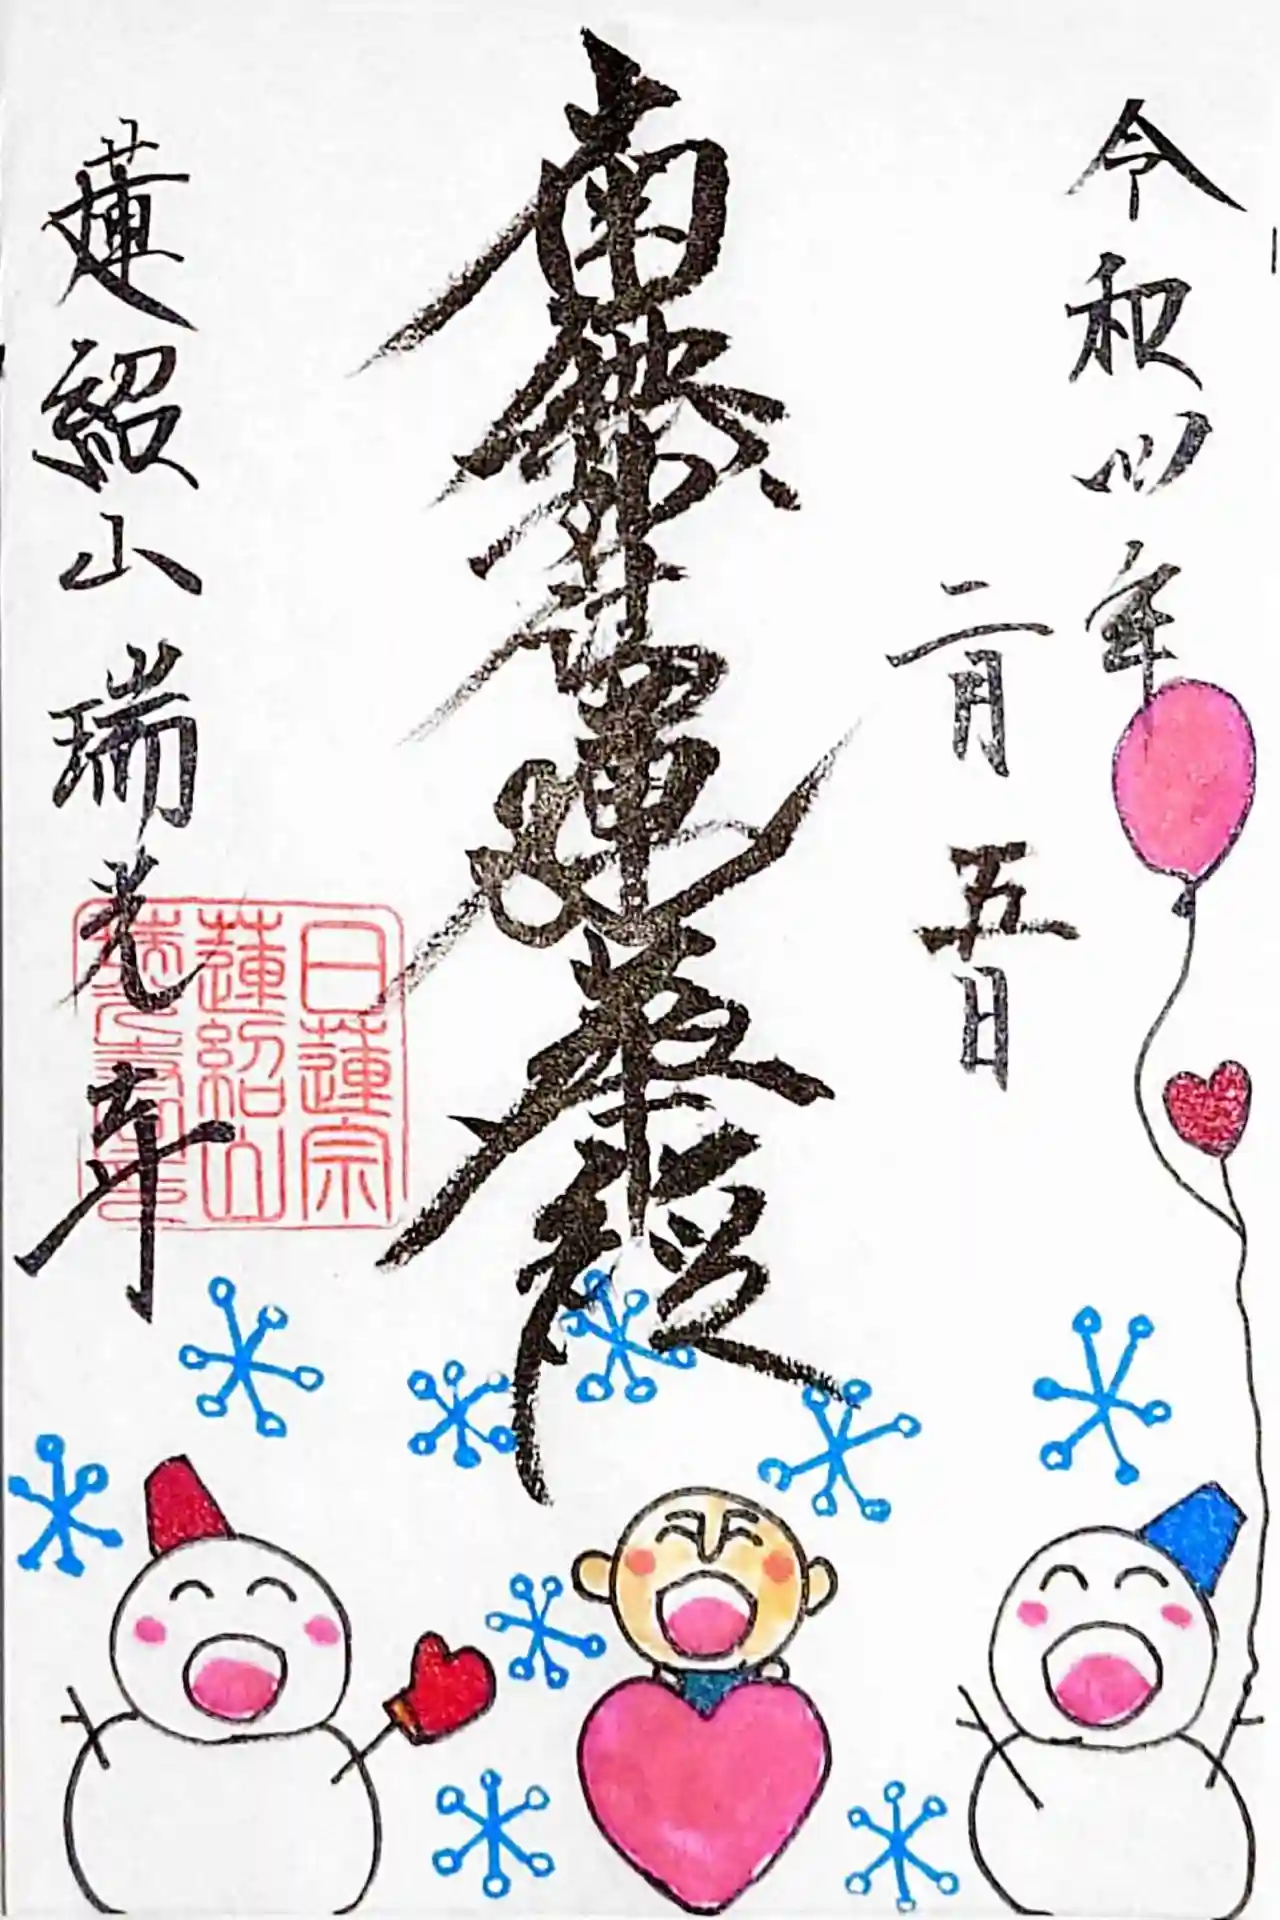 令和四年
二月五日
南無妙法蓮華経
蓮紹山瑞光寺
日蓮宗
蓮紹山
瑞光寺